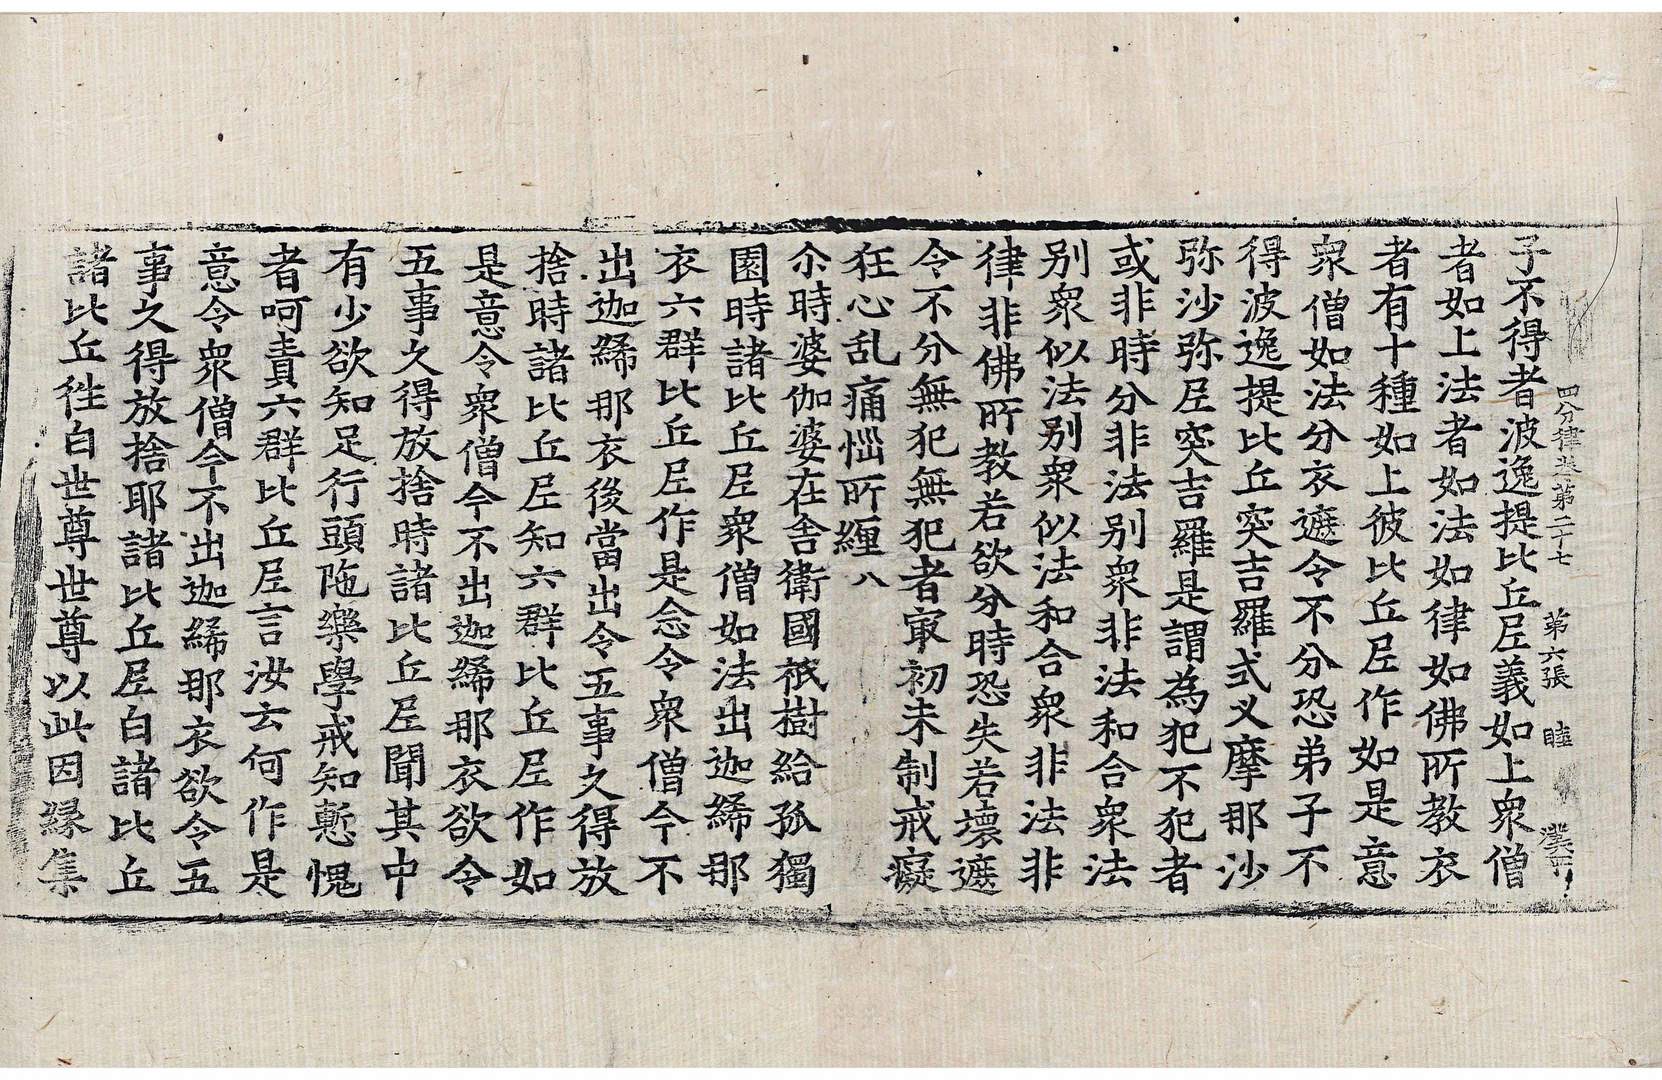 四分律卷第二十七 第六張 睦
子不得者波逸提比丘尼義如上衆僧
者如上法者如法如律如佛所教衣
者有十種如上彼比丘尼作如是意
衆僧如法分衣遮令不分恐弟子不
得波逸提比丘突吉羅式叉摩那沙
弥沙弥尼突吉羅是謂為犯不犯者
或非時分非法別衆非法和合衆法
別衆似法別衆似法和合衆非法非
律非佛所教若欲分時恐失若壞遮
令不分無犯無犯者㝡初未制戒癡
狂心乱痛惱所纏八
尒時婆伽婆在舍衛國祇樹給孤獨
園時諸比丘尼衆僧如法出迦絺那
衣六群比丘尼作是念令衆僧今不
出迦絺那衣後當出令五事久得放
捨時諸比丘尼知六群比丘尼作如
是意令衆僧今不出迦絺那衣欲令
五事久得放捨時諸比丘尼聞其中
有少欲知足行頭陁樂學戒知慙愧
者呵責六群比丘尼言汝云何作是
意令衆僧今不出迦絺那衣欲令五
事久得放捨耶諸比丘尼白諸比丘
諸比丘徃白世尊世尊以此因縁集